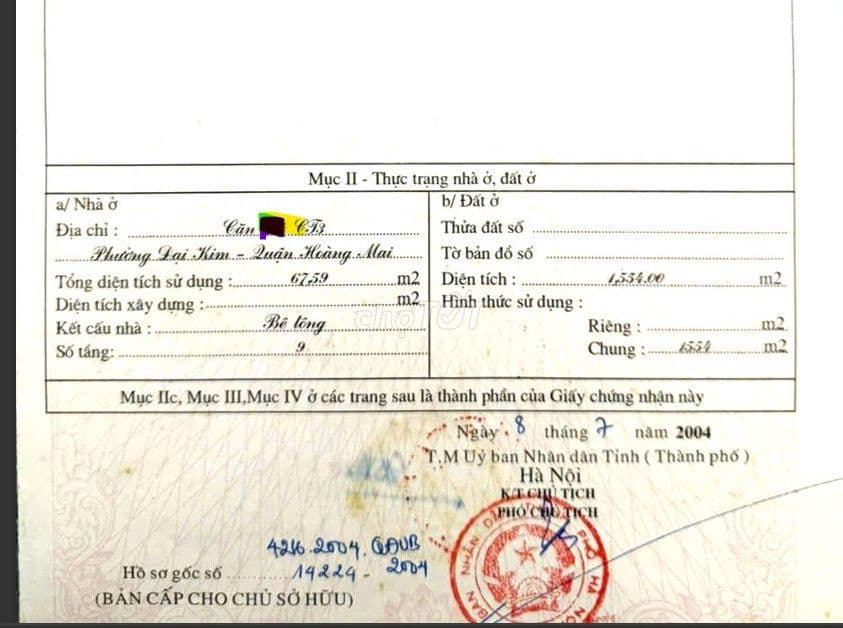 Mục II - Thực trạng nhà ở, đất ở
a/ Nhà ở
Địa chỉ : Căn CT3
Phường Đại Kim - Quận Hoàng Mai
Tổng diện tích sử dụng : 67,59 m2
Diện tích xây dựng : m2
Kết cấu nhà : Bê tông
Số tầng: 9
b/ Đất ở
Thửa đất số
Tờ bản đồ số
Diện tích : 1,554.00 m2
Hình thức sử dụng :
Riêng : m2
Chung : 1554 m2
chợTỐT
Mục IIc, Mục III,Mục IV ở các trang sau là thành phần của Giấy chứng nhận này
Ngày 8 tháng 7 năm 2004
T.M Uỷ ban Nhân dân Tỉnh ( Thành phố )
Hà Nội
K.T CHỦ TỊCH
PHÓ CHỦ TỊCH
4216.2004.QĐUB
Hồ sơ gốc số 14224 - 2004
(BẢN CẤP CHO CHỦ SỞ HỮU)